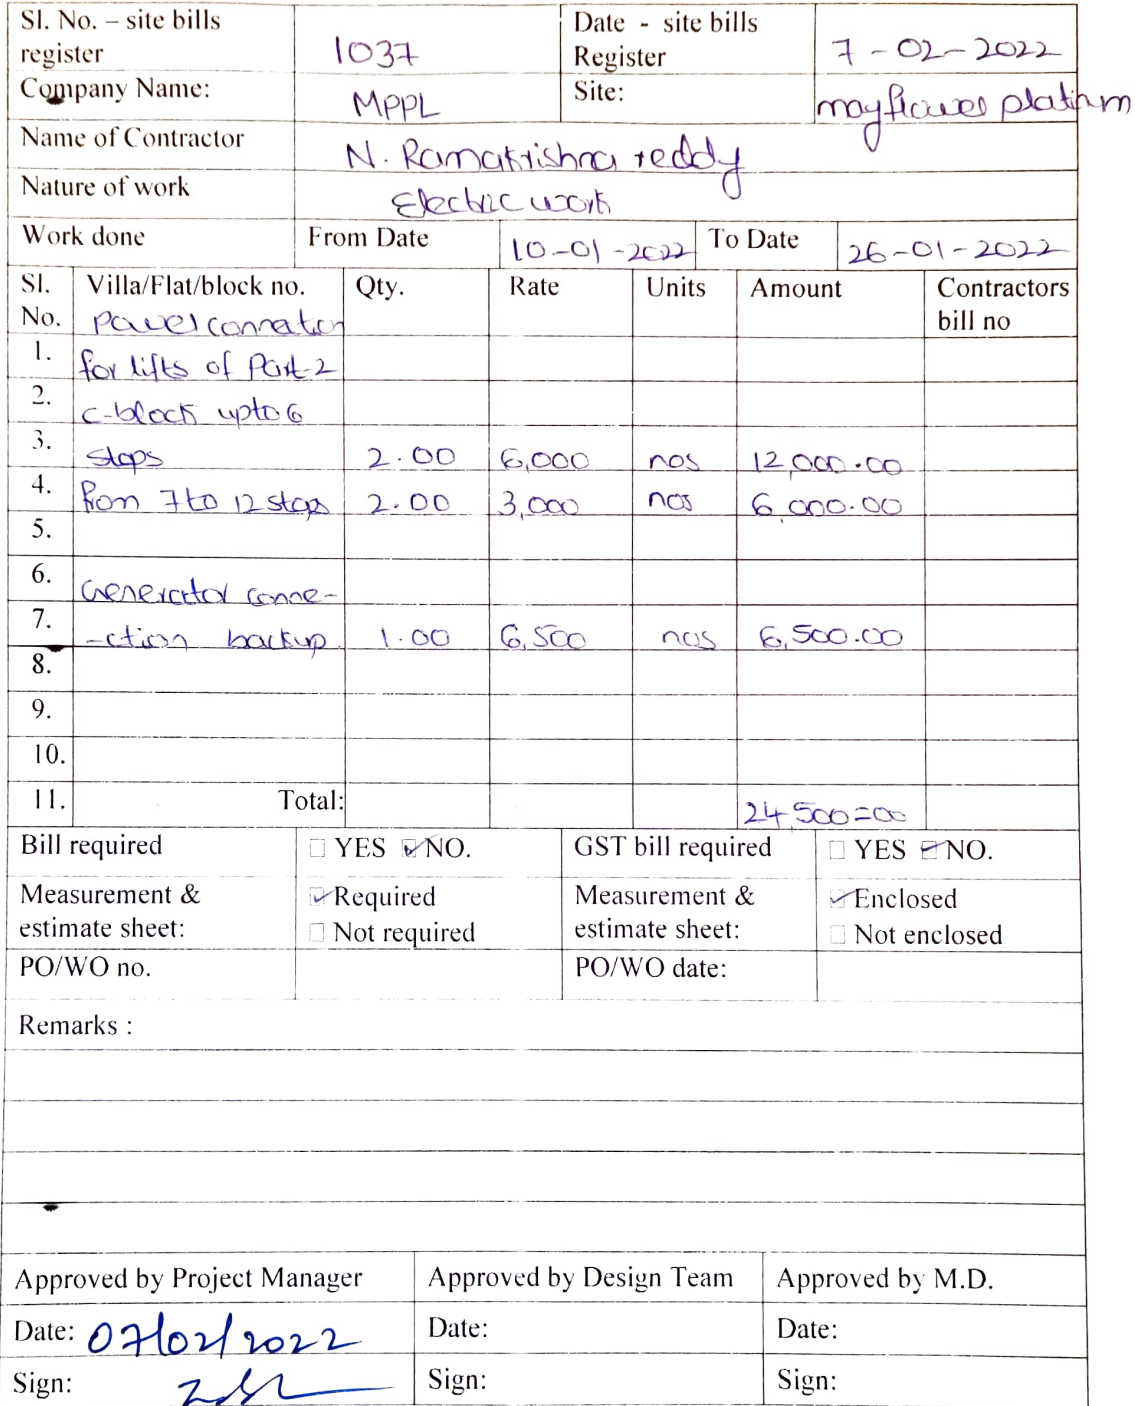 Sl. No. – site bills register 1037 Date - site bills Register 7-02-2022
Company Name: MPPL Site: mayflower platinum
Name of Contractor N. Ramakrishna reddy
Nature of work Electric work
Work done From Date 10-01-2022 To Date 26-01-2022
Sl. No. Villa/Flat/block no. Qty. Rate Units Amount Contractors bill no
Power connection
1. for lifts of Part-2
2. c-block upto 6
3. stops 2.00 6,000 nos 12,000.00
4. from 7 to 12 stops 2.00 3,000 nos 6,000.00
5.
6. Generator conne-
7. -ction backup. 1.00 6,500 nos 6,500.00
8.
9.
10.
11. Total: 24,500=00
Bill required YES NO. GST bill required YES NO.
Measurement & estimate sheet: Required Measurement & estimate sheet: Enclosed
Not required Not enclosed
PO/WO no. PO/WO date:
Remarks :
Approved by Project Manager Approved by Design Team Approved by M.D.
Date: 07/02/2022 Date: Date:
Sign: Sign: Sign: